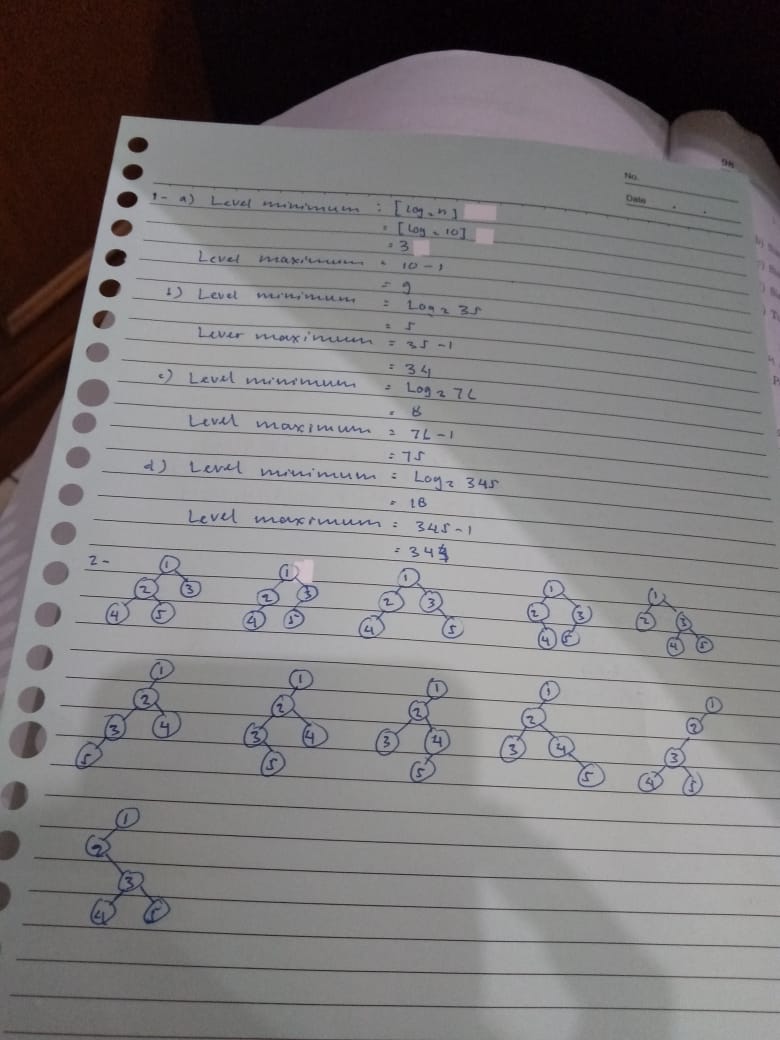 98
No.
Date
1- a) Level minimum : [Log₂ n]
= [Log₂ 10]
= 3
Level maximum = 10-1
= 9
b) Level minimum = Log₂ 35
= 5
Level maximum = 35-1
= 34
c) Level minimum = Log₂ 76
= 8
Level maximum = 76-1
= 75
d) Level minimum = Log₂ 345
= 18
Level maximum = 345-1
= 344
2-
1 1 1 1 1
2 3 2 3 2 3 2 3 2 3
4 5 4 5 4 5 4 5 4 5
1 1 1 1 1
2 2 2 2 2
3 4 3 4 3 4 3 4 3
5 5 5 5 4 5
1
2
3
4 5